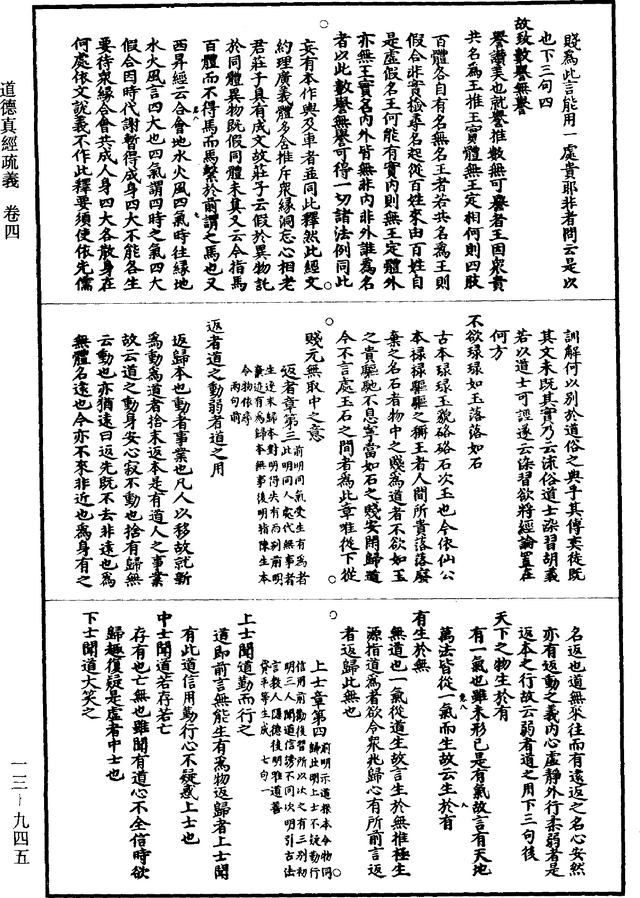 賤爲此言能用一處貴耶非者問云是以
也下三句四
故致數譽無譽
譽讚美也就譽推數無可譽者王因衆貴
共名爲王推王實體無王定相何則四肢
百體各自有名無名王者若共名爲王則
假合非實撿尋名起從百姓來由百姓自
是虛假名王何能有實內則無王定體外
亦無王實名內外皆無非內非外誰爲名
者以此數譽無譽可得一切諸法例同此
妄有本作輿及車者並同此釋然此經文
約理廣義體多合推斥衆緣洞忘心相老
君莊子具有成文故莊子云假於異物託
於同體異物既假同體未真又云今指馬
百體而不得馬而馬繫於前謂之馬也又
西昇經云合會地水火風四氣時往緣地
水火風言四大也四氣謂四時之氣四大
假合因時代謝暫得成身四大不能各生
要待衆緣合會共成人身四大各散身在
何處依文說義不作此釋要須使依先儒
訓解何以別於道俗之典乎其傳奕從既
其文未既其實乃云流俗道士染習胡義
若以道士可誣遂云染習欲將經論置在
何方
不欲琭琭如玉落落如石
古本琭琭玉貌硌硌石次玉也今依仙公
本祿祿驅驅之稱王者人間所貴落落廢
棄之名石者物中之賤爲道者不欲如玉
之貴驅馳不息寧當如石之賤安閑歸道
今不言處玉石之間者爲此章唯從下從
賤元無取中之意
返者章第三
前明同氣受生有爲者
此明同人處代無事者
生違來歸本對明得失有兩別前明
兼迹有爲歸本無事後明指陳生本
令物依尋
兩句前
返者道之動弱者道之用
返歸本也動者事業也凡人以移故就新
爲動爲道者捨末返本是有道人之事業
故云道之動身安心寂不動也捨有歸無
云動也亦猶遠曰返先既不去非遠也爲
無體名遠也今亦不來非近也爲身有之
名返也道無來往而有遠返之名心安然
亦有返動之義內心虛靜外行柔弱者是
返本之行故云弱者道之用下三句後
天下之物生於有
有一氣也雖未形已是有氣故言有天地
萬法皆從一氣而生故云生於有
有生於無
無道也一氣從道生故言生於無推極生
源指道爲者欲令衆兆歸心有所前言返
者返歸此無也
上士章第四
前明示道根本令物同
歸此明上士不疑勤行
信用前勤後習所以次之有三別初
明三人聞道信謗不同次明引古法
言教人隱德後明雅道善
貸平等生成
七句一
上士聞道勤而行之
道即前言無能生有爲物返歸者上士聞
有此道信用勤行心不疑惑上士也
中士聞道若存若亡
存有也亡無也雖聞有道心不全信時欲
歸趣復疑是虛者中士也
下士聞道大笑之
道德真經疏義　卷四
一三—九四五